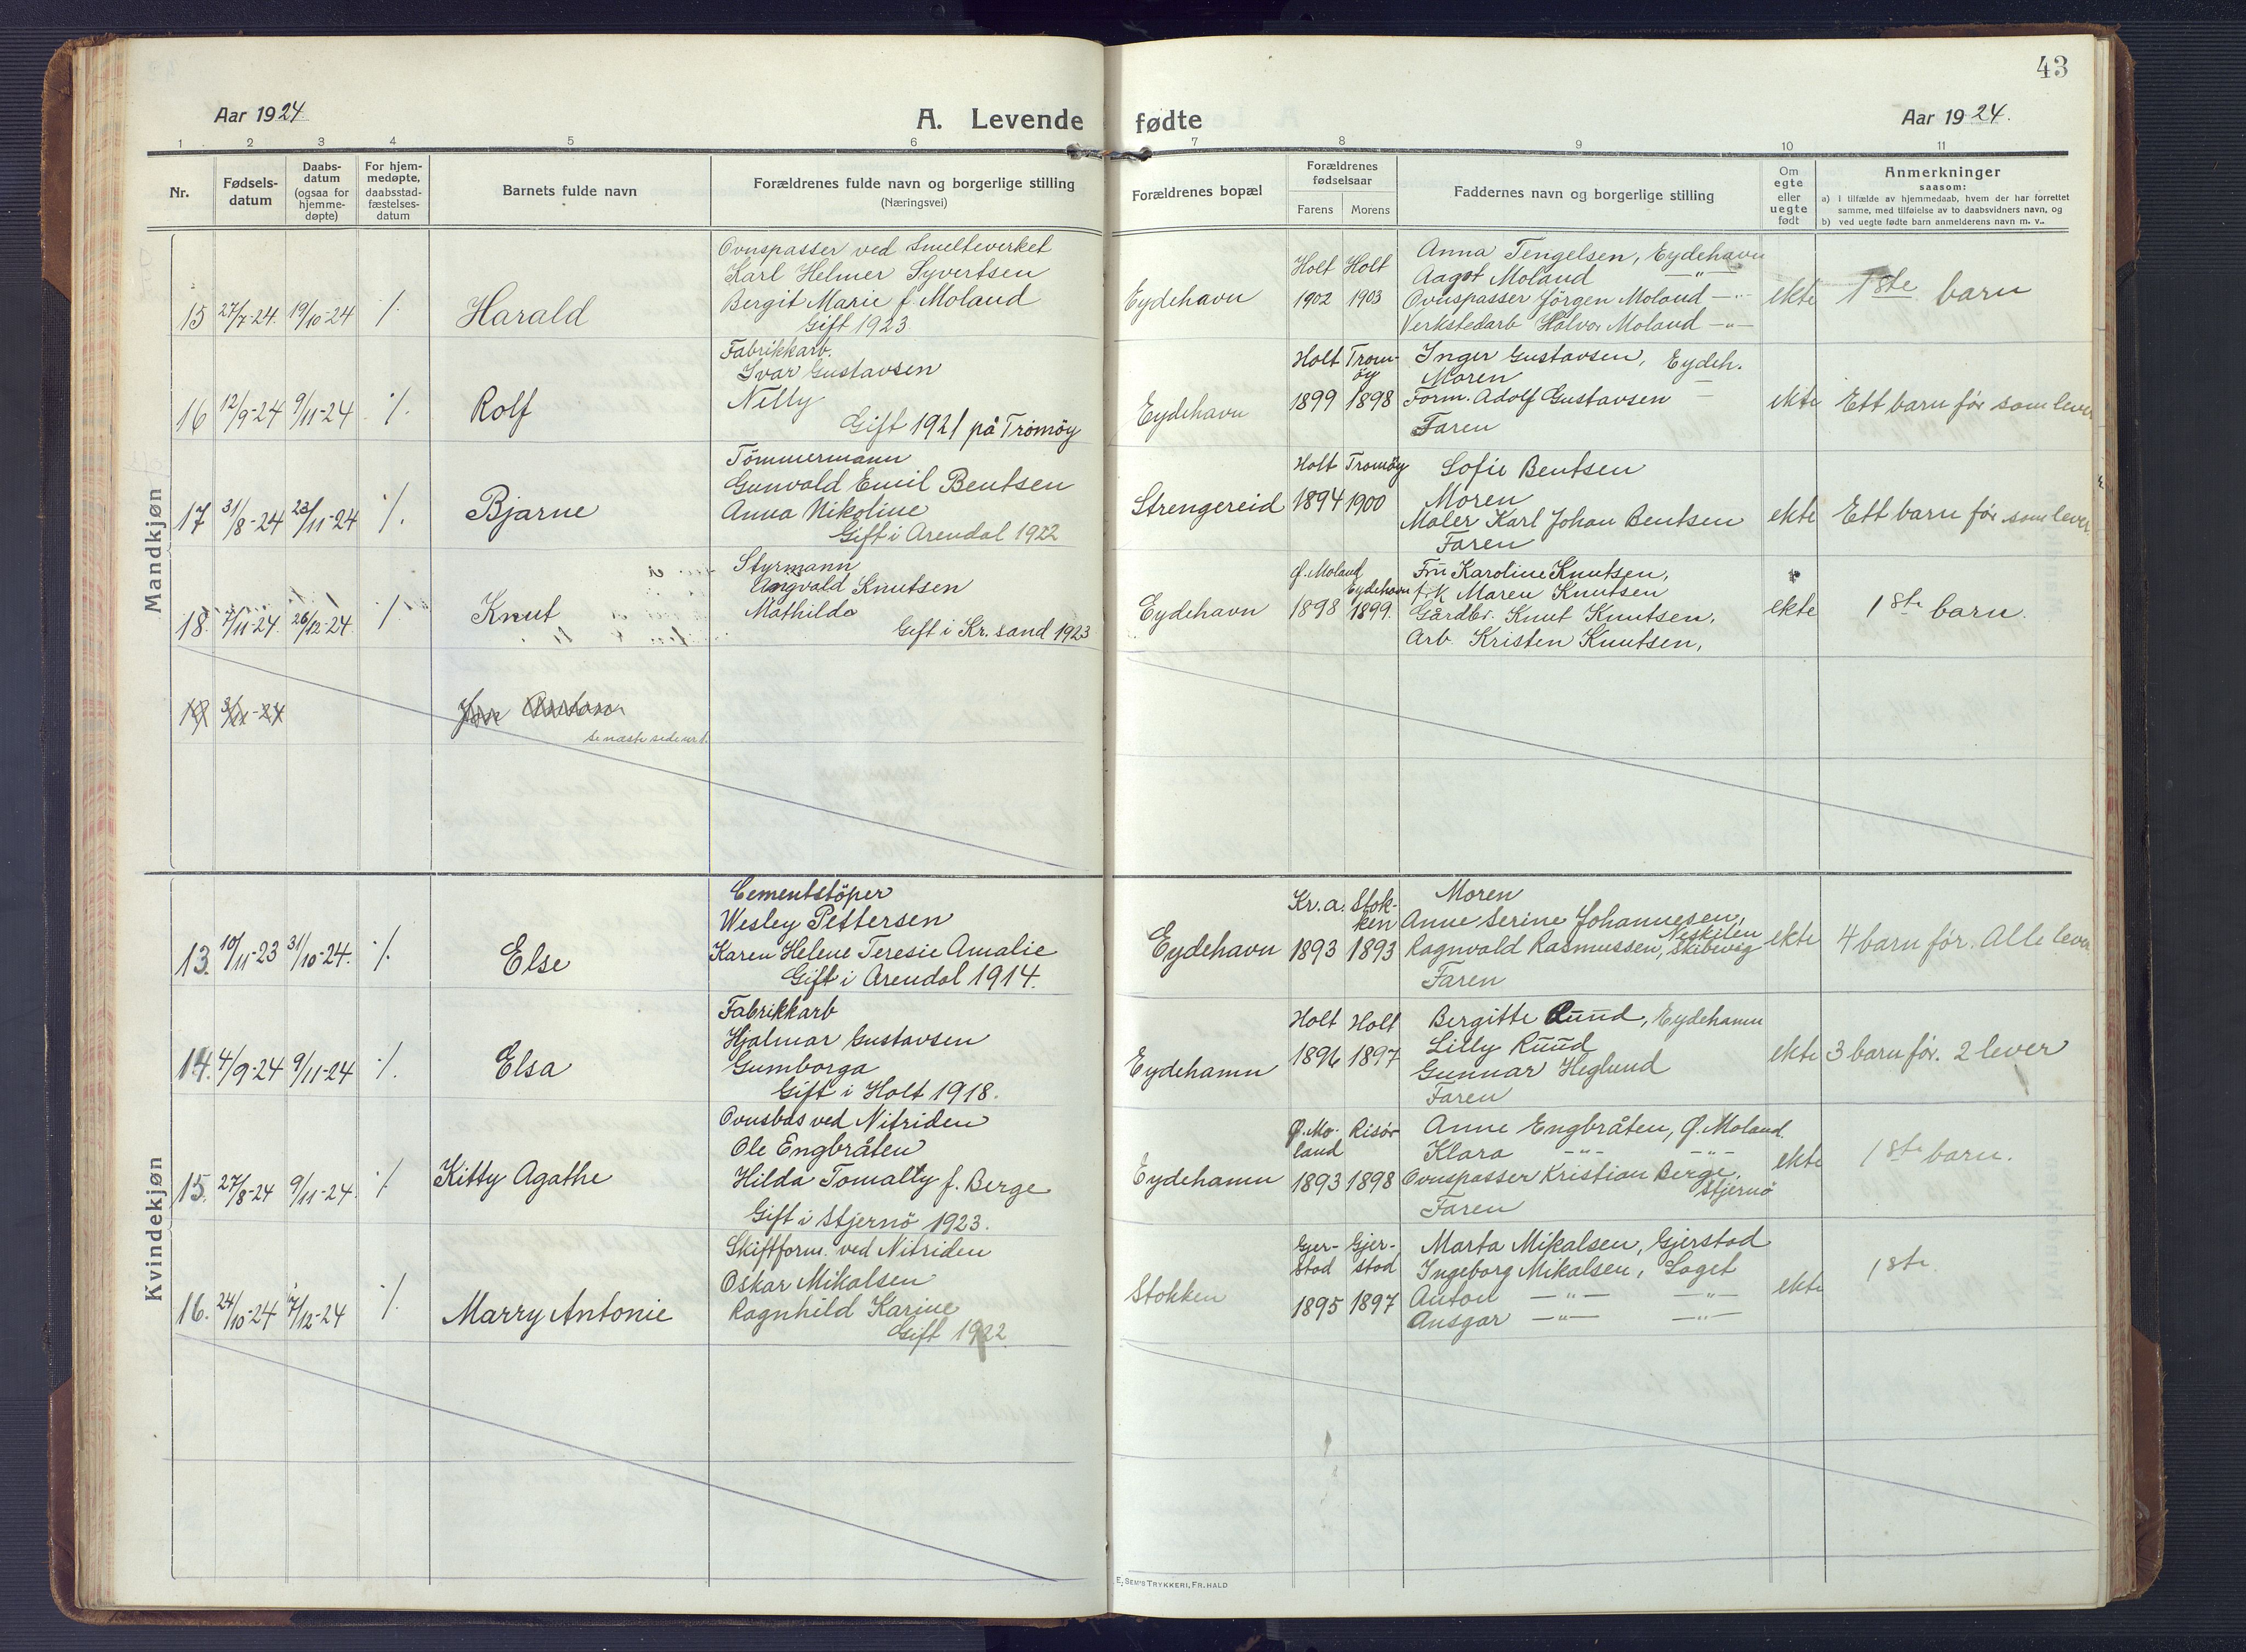 Aar 1924
A. Levende
1 2 3 4 5 6
Nr.
Fødsels-
datum
Daabs-
datum
(ogsaa for
hjemme-
døpte)
For hjem-
medøpte,
daabsstad-
fæstelses-
datum
Barnets fulde navn
Forældrenes fulde navn og borgerlige stilling
(Næringsvei)
Mandkjøn
15 27/7-24. 19/10-24 ./. Harald
Ovnspasser ved Smelteverket
Karl Helmer Syvertsen
Bergit Marie f. Moland
Gift 1923.
16 12/9-24 9/11-24 ./. Rolf
Fabrikkarb.
Ivar Gustavsen
Nelly
Gift 1921 på Tromöy
17 31/8-24 23/11-24 ./. Bjarne
Tömmermann
Gunvald Emil Bentsen
Anna Nikoline
Gift i Arendal 1922
18. 7/11-24. 26/12-24. ./. Knut
Styrmann
Angvald Knutsen
Mathilde
Gift i Kr. sand 1923
19 24
se næste side nr 1.
Kvindekjøn
13. 10/11-23 31/10-24. ./. Else
Cementstöper
Wesley Pettersen
Karen Helene Teresie Amalie
Gift i Arendal 1914.
14. 4/9-24 9/11-24 ./. Elsa
Fabrikkarb
Hjalmar Gustavsen
Gumborga
Gift i Holt 1918.
15. 27/8-24 9/11-24. ./. Kitty Agathe
Ovnsbas ved Nitriden
Ole Engbråten
Hilda Tomally f. Berge
Gift i Stjernö 1923.
16. 24/10-24 7/12-24 ./. Marry Antonie
Skiftform. ved Nitriden
Oskar Mikalsen
Ragnhild Karine
Gift 1922.
43
fødte
Aar 1924.
7 8 9 10 11
Forældrenes bopæl
Forældrenes
fødselsaar
Farens Morens
Faddernes navn og borgerlige stilling
Om
egte
eller
uegte
født
Anmerkninger
saasom:
a) I tilfælde av hjemmedaab, hvem der har forrettet
samme, med tilføielse av to daabsvidners navn, og
b) ved uegte fødte barn anmelderens navn m. v..
Eydehavn
Holt Holt
1902 1903
Anna Tengelsen, Eydehavn
Aagot Moland —"—
Ovnspasser Jörgen Moland —"—
Verkstedarb Halvor Moland —"—
ekte 1ste barn
Eydehavn
Holt Trom-
öy
1899 1898
Inger Gustavsen, Eydeh.
Moren —
Form. Adolf Gustavsen —
Faren
ekte Ett barn før som lever
Strengereid
Holt Tromöy
1894 1900
Sofie Bentsen
Moren
Maler Karl Johan Bentsen
Faren
ekte Ett barn før som lever.
Eydehavn
Ø. Moland Eydehavn
1898 1899.
Fru Karoline Knutsen,
frk Maren Knutsen
Gårdbr. Knut Knutsen,
Arb. Kristen Knutsen,
ekte 1ste barn.
Eydehavn
Kr.a. Stok-
ken
1893 1893
Moren
Anne Serine Johannesen, Neskilen
Ragnvald Rasmussen, Skibvig
Faren
ekte 4 barn før. Alle lever.
Eydehamn
Holt Holt
1896 1897
Bergitte Ruud, Eydehamn
Lilly Ruud
Gunnar Heglund
Faren
ekte 3 barn før. 2 lever
Eydehamn
Ø. Mo-
land Risør
1893 1898
Anne Engbråten, Ø. Moland.
Klara —"— —"—
Ovnspasser Kristian Berge, Stjernö
Faren
ekte 1ste barn.
Stokken
Gjer-
stad Gjer-
stad
1895 1897
Marta Mikalsen, Gjerstad
Ingeborg Mikalsen, Laget
Anton —"— —"—
Ansgar —"— —"—
ekte 1ste.
E. SEM'S TRYKKERI, FR.HALD